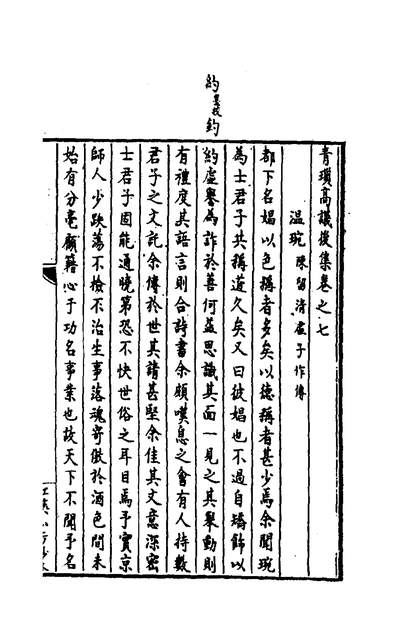 約 某校 鈞
青瑣高議後集卷之七
溫琬 陳留清虛子作傳
都下名娼以色稱者多矣以德稱者甚少焉余聞琬
為士君子共稱道久矣又曰彼娼也不過自矯飾以
約虛譽為詐於善何益思識其面一見之其舉動則
有禮度其語言則合詩書余頗嘆息之會有人持數
君子之文託余傳於世其請甚堅余佳其文意深密
士君子固能通曉第恐不快世俗之耳目焉予實京
師人少跌蕩不檢不治生事落魂寄傲於酒色間未
始有分毫顧籍心于功名事業也故天下不聞予名